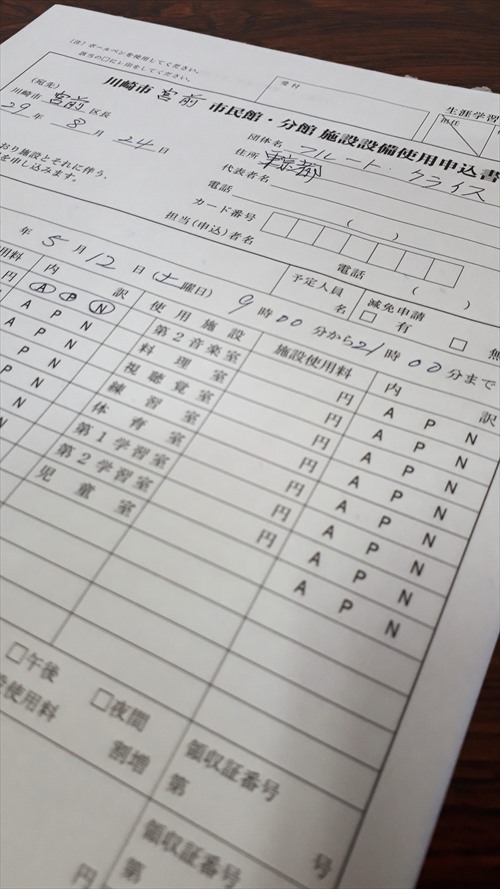 (注) ボールペンを使用してください。
該当の□に✓印をしてください。
受付
生涯学習
川崎市 宮前 市民館・分館 施設設備使用申込書
(宛先)
川崎市 宮前 区長
29年 8月 24日
団体名 フルート・クライス
住所 東京都
代表者名
電話 ( )
カード番号
担当(申込)者名
電話 ( )
おり施設とそれに伴う、
を申し込みます。
年 5月 12日 (土曜日) 9時00分から21時00分まで
予定人員 名
減免申請
□ 有 □ 無
用料 内訳 使用施設 施設使用料 内訳
円 A P N 第2音楽室 円 A P N
円 A P N 料理室 円 A P N
A P N 視聴覚室 円 A P N
A P N 練習室 円 A P N
A P N 体育室 円 A P N
P N 第1学習室 円 A P N
N 第2学習室 円 A P N
児童室 円 A P N
□午後 □夜間
使用料 割増
領収証番号
第 号
領収証番号
円 第